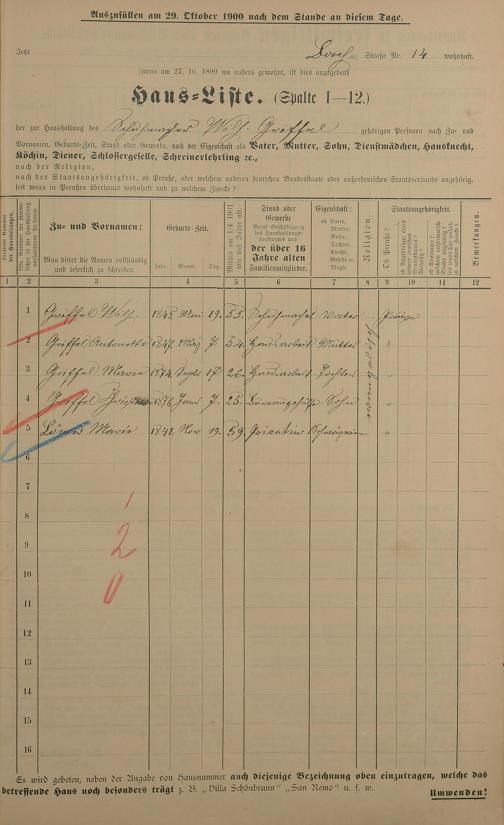 Auszufüllen am 29. Oktober 1900 nach dem Stande an diesem Tage.
Jetzt Straße Nr. 14 wohnhaft.
(wenn am 27. 10. 1899 wo anders gewohnt, ist dies anzugeben)
Haus-Liste. (Spalte 1—12.)
der zur Haushaltung des Schuhmacher Wilh. Griffel gehörigen Personen nach Zu- und
Vornamen, Geburts-Zeit, Stand oder Gewerbe, nach der Eigenschaft als Vater, Mutter, Sohn, Dienstmädchen, Hausknecht,
Köchin, Diener, Schlossergeselle, Schreinerlehrling ꝛc.,
nach der Religion,
nach der Staatsangehörigkeit, ob Preuße, oder welchem anderen deutschen Bundesstaate oder außerdeutschen Staatsverbande angehörig,
seit wann in Preußen überhaupt wohnhaft und zu welchem Zwecke?
Zu- und Vornamen:
Man bittet die Namen vollständig
und leserlich zu schreiben.
Geburts-Zeit.
Jahr. Monat. Tag.
Mithin am 1/4 1901
wie viel Jahre alt.
Stand oder
Gewerbe
der über 16
Jahre alten
Familienmitglieder.
Eigenschaft:
ob Vater,
Mutter,
Sohn,
Tochter,
Knecht,
Geselle o.
Magd.
Religion.
Staatsangehörigkeit.
Ob Preuße?
Bemerkungen.
1 2 3 4 5 6 7 8 9 10 11 12
1 Griffel Wilh. 1848 Mai 19. 53. Schuhmacher Vater Preuße
2 Griffel Antonette 1847 7 54. Hausarbeit Mutter "
3 Griffel Marie 1874 Sept 17 26. Hausarbeit Tochter "
4 Griffel 1876 Janr 7. 25. Sohn "
5 Marie 1841 Nov 19. 59. Privatin Schwägerin "
evangelisch
6
7
8
9
10
11
12
13
14
15
16
1
2
0
Es wird gebeten, neben der Angabe von Hausnummer auch diejenige Bezeichnung oben einzutragen, welche das
betreffende Haus noch besonders trägt z. B. „Villa Schönbrunn" „San Remo" u. s. w.
Umwenden!